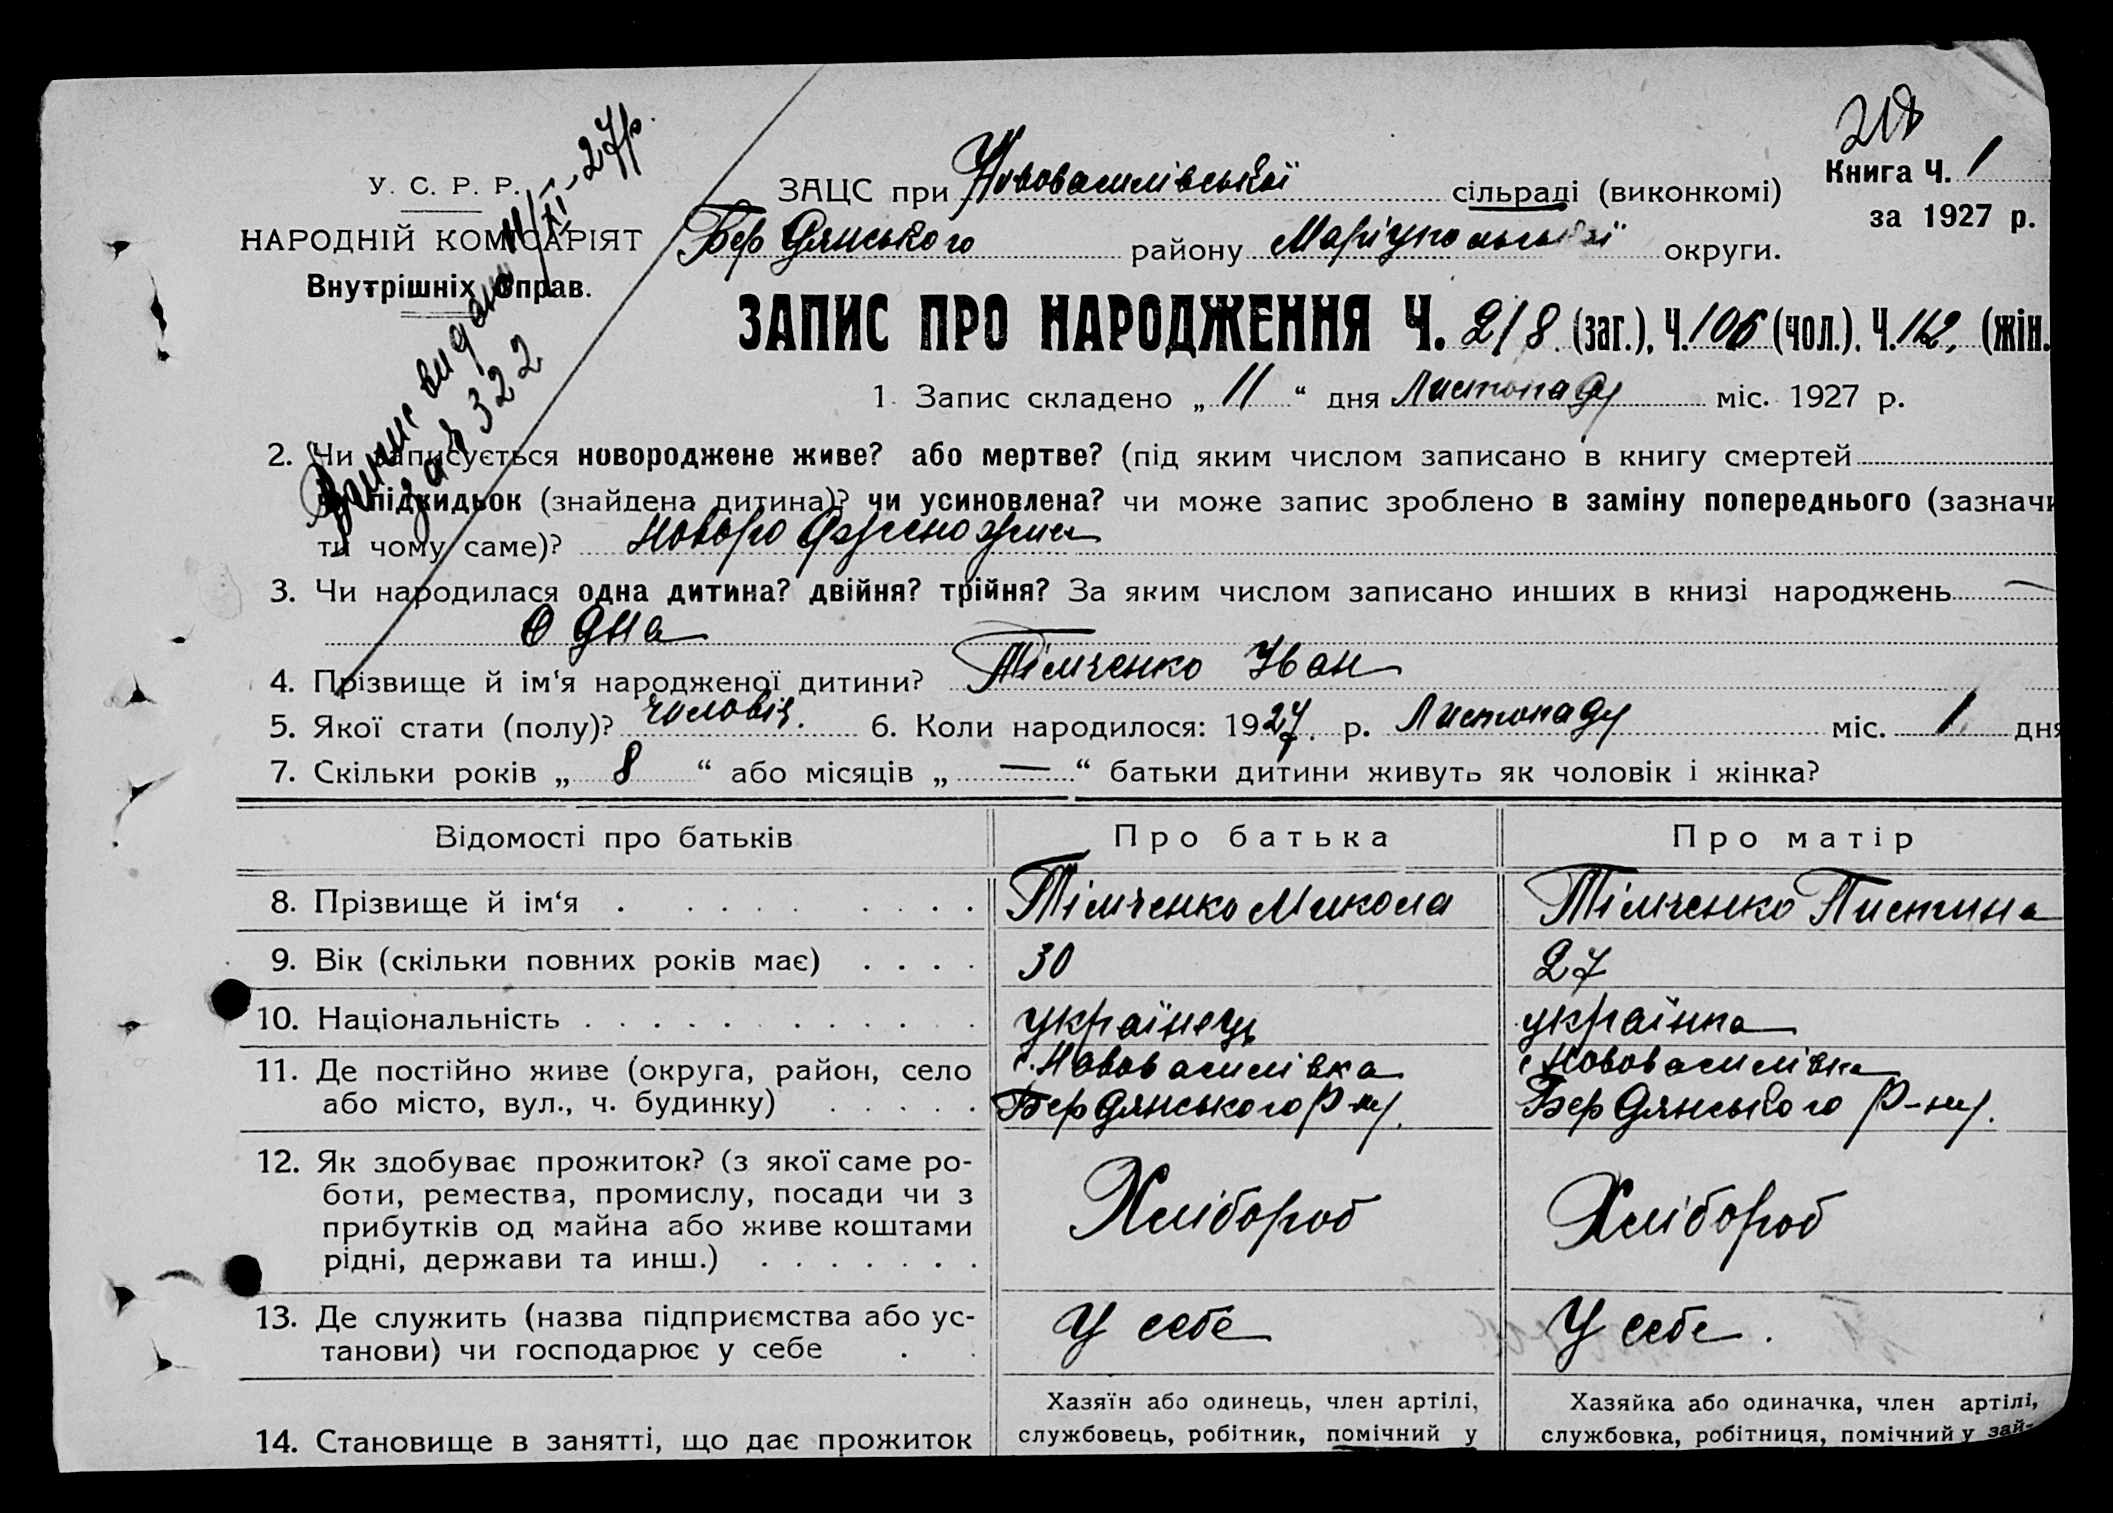 218
У. С. Р. Р.
НАРОДНІЙ КОМІСАРІЯТ
Внутрішніх Справ.
Випис видано 11/XI-27р.
за ч 322
ЗАЦС при Нововасилівської сільраді (виконкомі)
Книга Ч. 1
за 1927 р.
Бердянського району Маріупольської округи.
ЗАПИС ПРО НАРОДЖЕННЯ Ч. 218 (заг.), Ч. 106 (чол.), Ч. 112, (жін.
1. Запис складено „ 11 “ дня Листопаду міс. 1927 р.
2. Чи записується новороджене живе? або мертве? (під яким числом записано в книгу смертей
підкидьок (знайдена дитина)? чи усиновлена? чи може запис зроблено в заміну попереднього (зазначи
ти чому саме)?
3. Чи народилася одна дитина? двійня? трійня? За яким числом записано инших в книзі народжень —
Одна
4. Прізвище й ім‘я народженої дитини? Тімченко Іван
5. Якої стати (полу)? чоловіч. 6. Коли народилося: 1927. р. Листопаду міс. 1 дня
7. Скільки років „ 8 “ або місяців „ — “ батьки дитини живуть як чоловік і жінка?
Відомості про батьків Про батька Про матір
8. Прізвище й ім‘я . . . . . . . . . Тімченко Микола Тімченко Пистина
9. Вік (скільки повних років має) . . . . 30 27
10. Національність . . . . . . . . . . . . українець українка
11. Де постійно живе (округа, район, село с. Нововасилівка с Нововасилівка
або місто, вул., ч. будинку) . . . . . Бердянського Р-ну. Бердянського Р-ну.
12. Як здобуває прожиток? (з якої саме ро-
боти, ремества, промислу, посади чи з Хлібороб Хлібороб
прибутків од майна або живе коштами
рідні, держави та инш.) . . . . . . .
13. Де служить (назва підприємства або ус- У себе У себе.
танови) чи господарює у себе . .
Хазяїн або одинець, член артілі, Хазяйка або одиначка, член артілі,
14. Становище в занятті, що дає прожиток службовець, робітник, помічний у службовка, робітниця, помічний у зай-